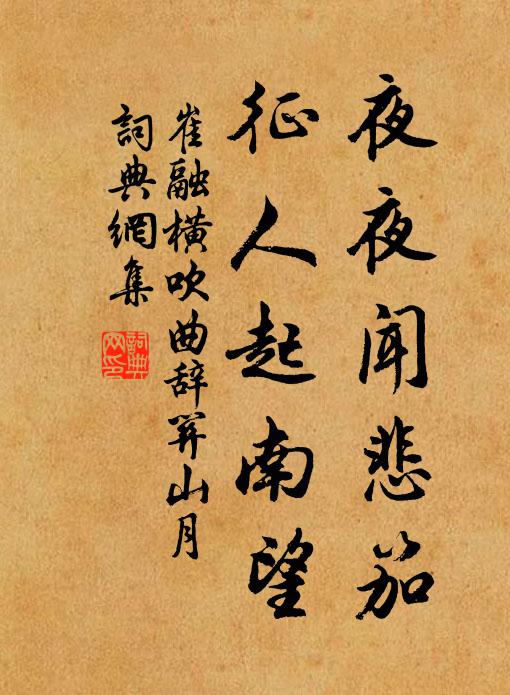 夜夜闻悲笳
征人起南望
崔融橫吹曲辞関山月
詞典網集
詞典
网印